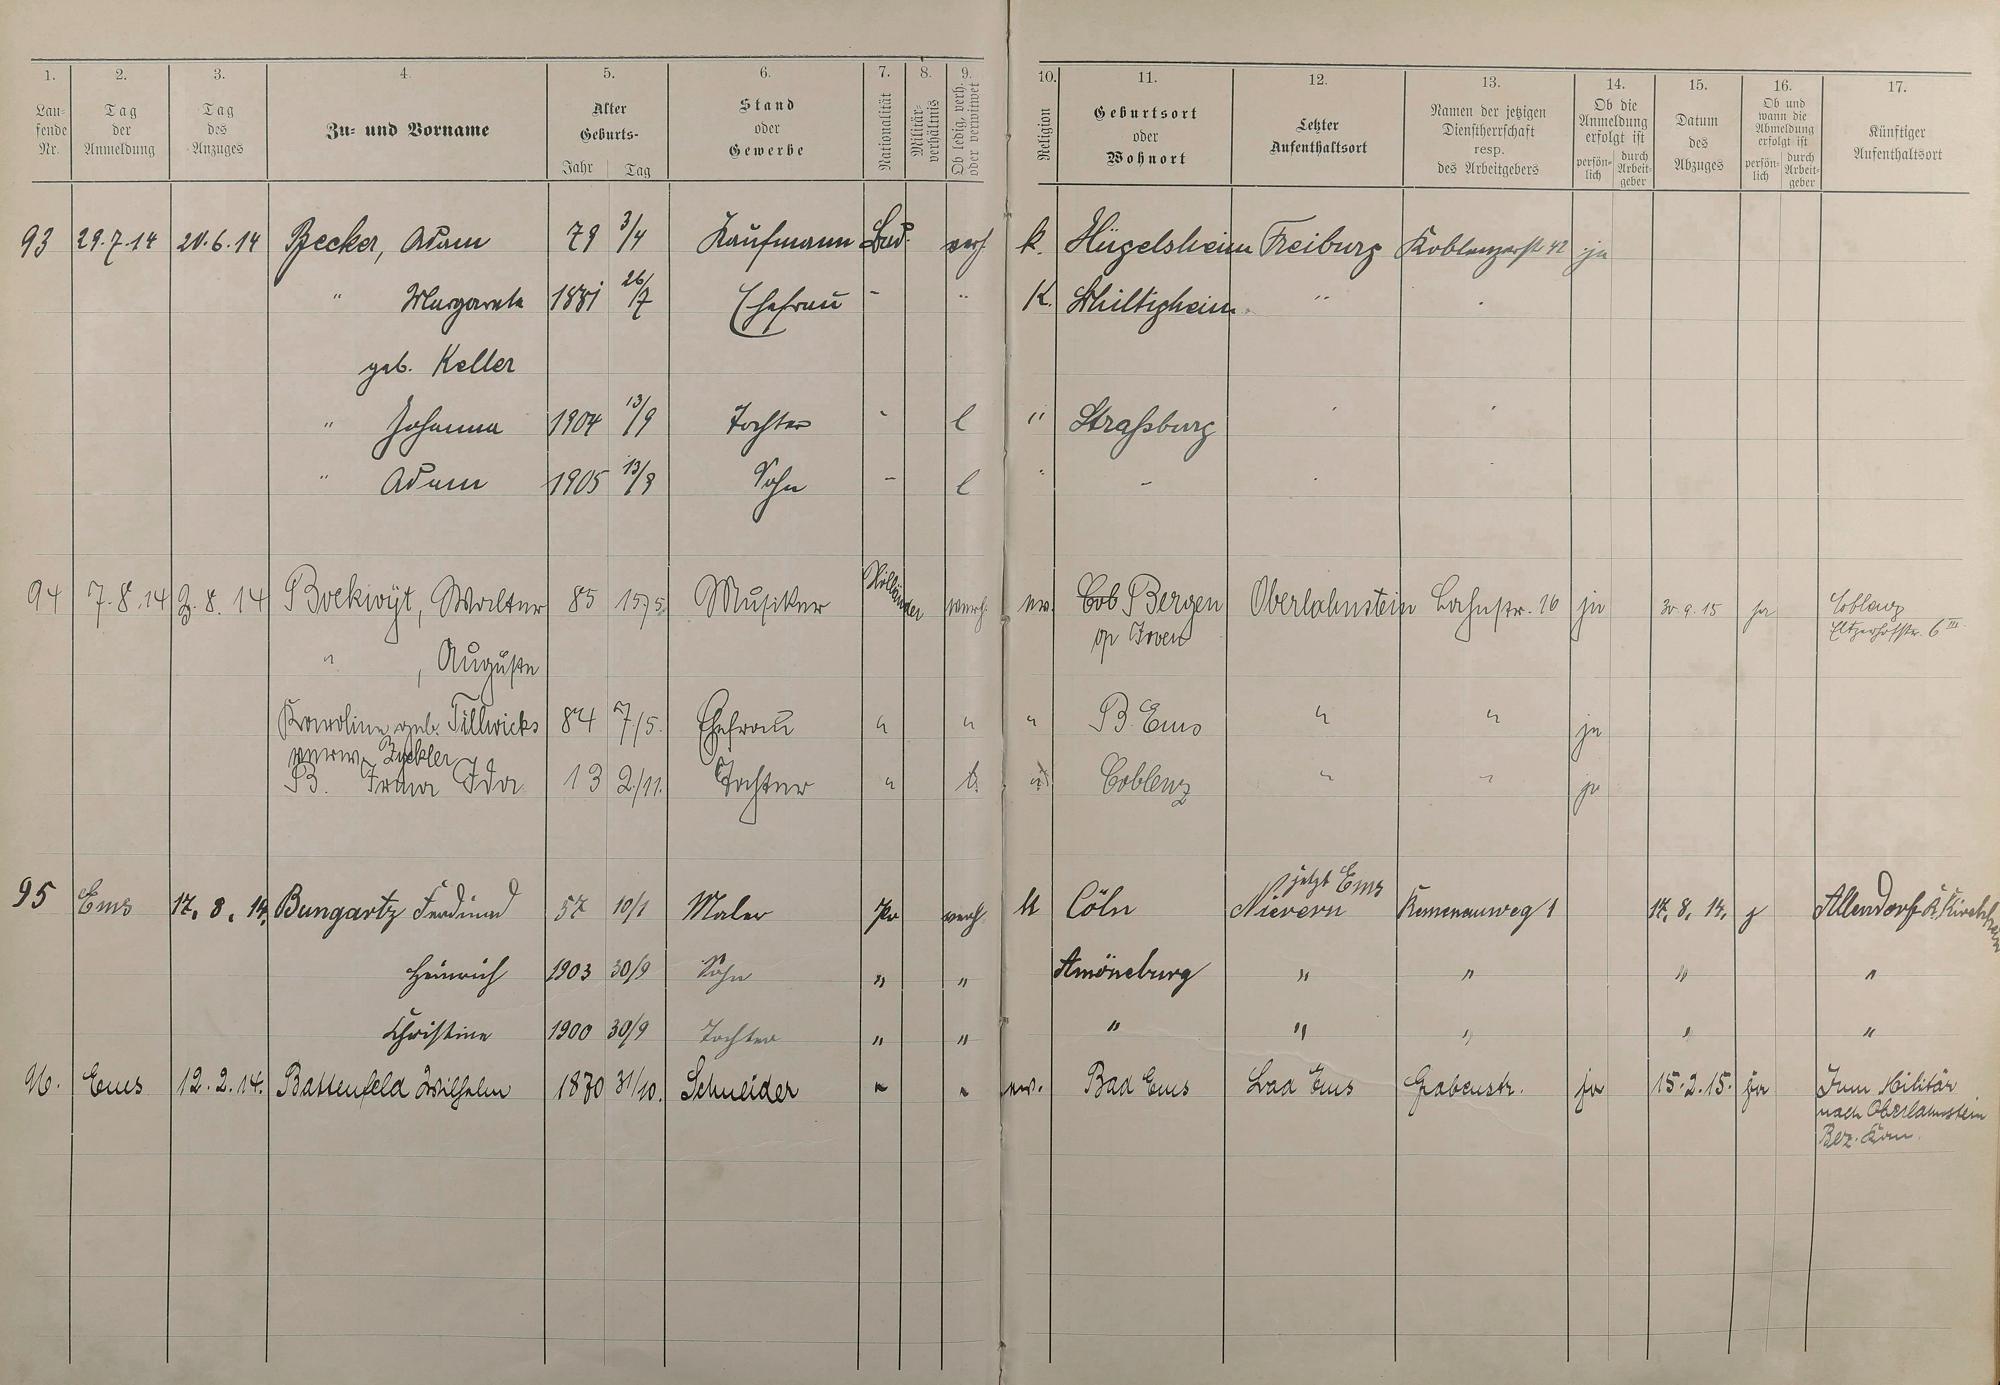 1. 2. 3. 4. 5. 6. 7. 8. 9. 10. 11. 12. 13. 14. 15. 16. 17.
Lau-
fende
Nr.
Tag
der
Anmeldung
Tag
des
Anzuges
Zu- und Vorname
Alter
Geburts-
Jahr Tag
Stand
oder
Gewerbe
Nationalität
Militär-
verhältnis
Ob ledig, verh.
oder verwitwet
Religion
Geburtsort
oder
Wohnort
Letzter
Aufenthaltsort
Namen der jetzigen
Dienstherrschaft
resp.
des Arbeitgebers
Ob die
Anmeldung
erfolgt ist
persön-
lich
durch
Arbeit-
geber
Datum
des
Abzuges
Ob und
wann die
Abmeldung
erfolgt ist
persön-
lich
durch
Arbeit-
geber
Künftiger
Aufenthaltsort
93 29.7.14 20.6.14 Becker, Adam 79 3/4 Kaufmann Bad. verh. k. Hügelsheim Freiburg Koblenzerstr 42 ja
" Margareta 1881 26/7 Ehefrau - " K. Schiltigheim "
geb. Keller
" Johanna 1904 13/9 Tochter - l " Straßburg
" Adam 1905 13/8 Sohn - l " -
94 7.8.14 3.8.14 Walter 85 15/5. Musiker Holländer verh. ev. Cob Bergen Oberlahnstein Lahnstr. 16 ja 30.9.15 ja Coblenz
op Zoom Eltzerhofstr. 6 III
" , Auguste
Karoline geb. Tillwicks 84 7/5. Ehefrau " " " B. Ems " " ja
verw.
B. Irma Ida 13 2/11. Tochter " l. Coblenz " " ja
95 Ems 17.8.14. Bungartz Ferdinand 57 10/1 Maler Pr verh. k Cöln Nievern jetzt Ems Kemenauweg 1 17.8.14. j Allendorf K. Kirchhain
Heinrich 1903 30/9 Sohn " " Amöneburg " " " "
Christine 1900 30/9 Tochter " " " " " " "
96. Ems 12.2.14. Battenfeld Wilhelm 1870 31/10. Schneider " " ev. Bad Ems Bad Ems Grabenstr. ja 15.2.15. ja Zum Militär
nach Oberlahnstein
Bez. Kom.